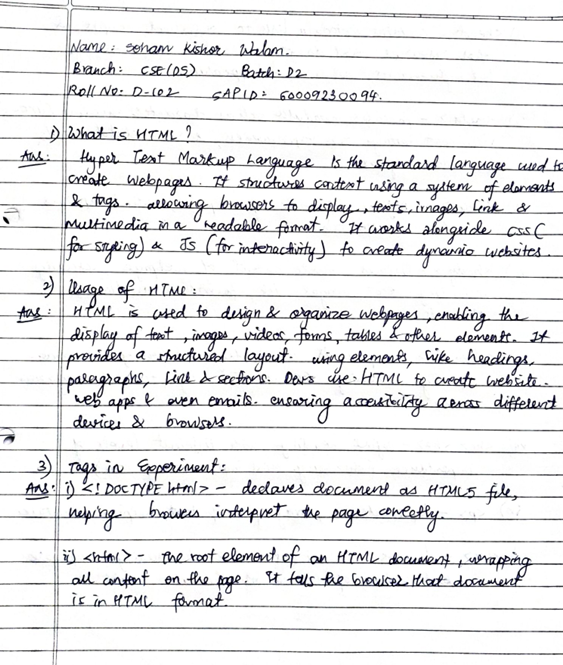 Name: Soham Kishor Walam.
Branch: CSE(DS) Batch: D2
Roll No: D-102 SAPID: 60009230094.
1) What is HTML?
Ans: Hyper Text Markup Language is the standard language used to
create webpages. It structures content using a system of elements
& tags. allowing browsers to display, texts, images, link &
multimedia in a readable format. It works alongside CSS (
for styling) & JS (for interactivity) to create dynamic websites.
2) Usage of HTML:
Ans: HTML is used to design & organize webpages, enabling the
display of text, images, videos, forms, tables & other elements. It
provides a structured layout. using elements, like headings,
paragraphs, link & sections. Devs use HTML to create website.
web apps & even emails. ensuring accessibility across different
devices & browsers.
3) Tags in Experiment:
Ans: i) <!DOCTYPE html> - declares document as HTML5 file,
helping browsers interpret the page correctly.
ii) <html> - the root element of an HTML document, wrapping
all content on the page. It tells the browser that document
is in HTML format.